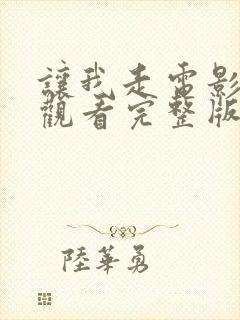 讓我走電影
觀看完整版
陸華勇